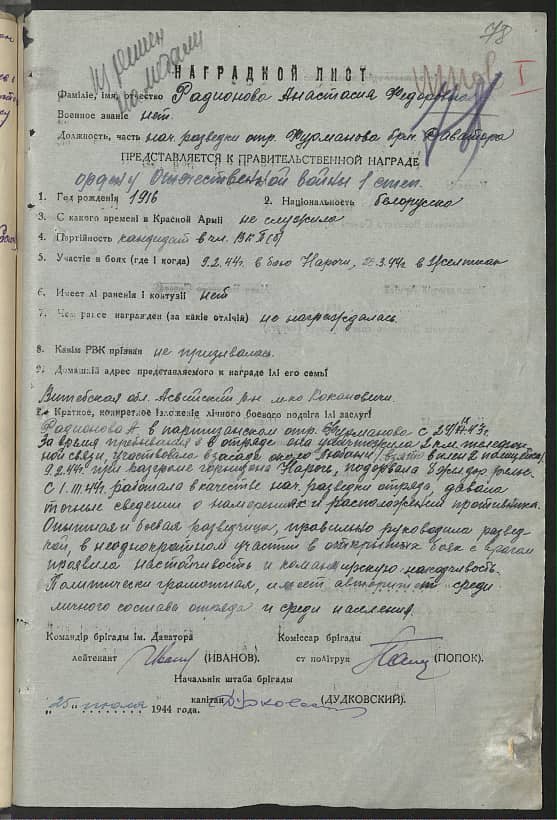 78
НАГРАДНОЙ ЛИСТ
I
Фамілiе, імя, отчество Радионова Анастасия Федоровна
Военное званіе нет.
Должность, часть нач. разведки отр. Фурманова бриг. Даватора
ПРЕДСТАВЛЯЕТСЯ К ПРАВИТЕЛЬСТВЕННОЙ НАГРАДЕ
ордену Отечественной войны 1 степ.
1. Год рожденія 1916 2. Національность белоруска
3. С какого времени в Красной Армії не служила
4. Партійность кандидат в чл. ВКП(б)
5. Участіе в боях (где і когда) 9.2.44г. в бою Нарочи, 3.44г. в
6. Имеет лі раненія і контузіі нет
7. Чем ранее награжден (за какіе отлічія) не награждалась.
8. Какім РВК прізван не призывалась.
9. Домашній адрес представляемого к награде ілі его семьі
Витебская обл. Освейский р-н м-ко Кохановичи.
Краткое, конкретное ізложеніе лічного боевого подвіга ілі заслуг
Радионова А. в партизанском отр. Фурманова с 43г.
За время пребывания в отряде она уничтожила 2 км. телефон-
ной связи, участвовала в засаде около Любани
9.2.44г. при разгроме гарнизона Нарочь, подорвала жел.дор. рельс.
С 1.III.44г. работала в качестве нач. разведки отряда, давала
точные сведении о намерениях и расположении противника.
Опытная и боевая разведчица, правильно руководила развед-
кой, в неоднократном участии в открытых боях с врагом
проявила настойчивость и командирскую находчивость.
Политически грамотная, имеет авторитет среди
личного состава отряда и среди населения.
Командір бригады ім. Даватора Коміссар бригады
лейтенант (ИВАНОВ). ст політрук (ПОПОК).
Начальнік штаба брігады
капітан (ДУДКОВСКИЙ).
"25" июля 1944 года.